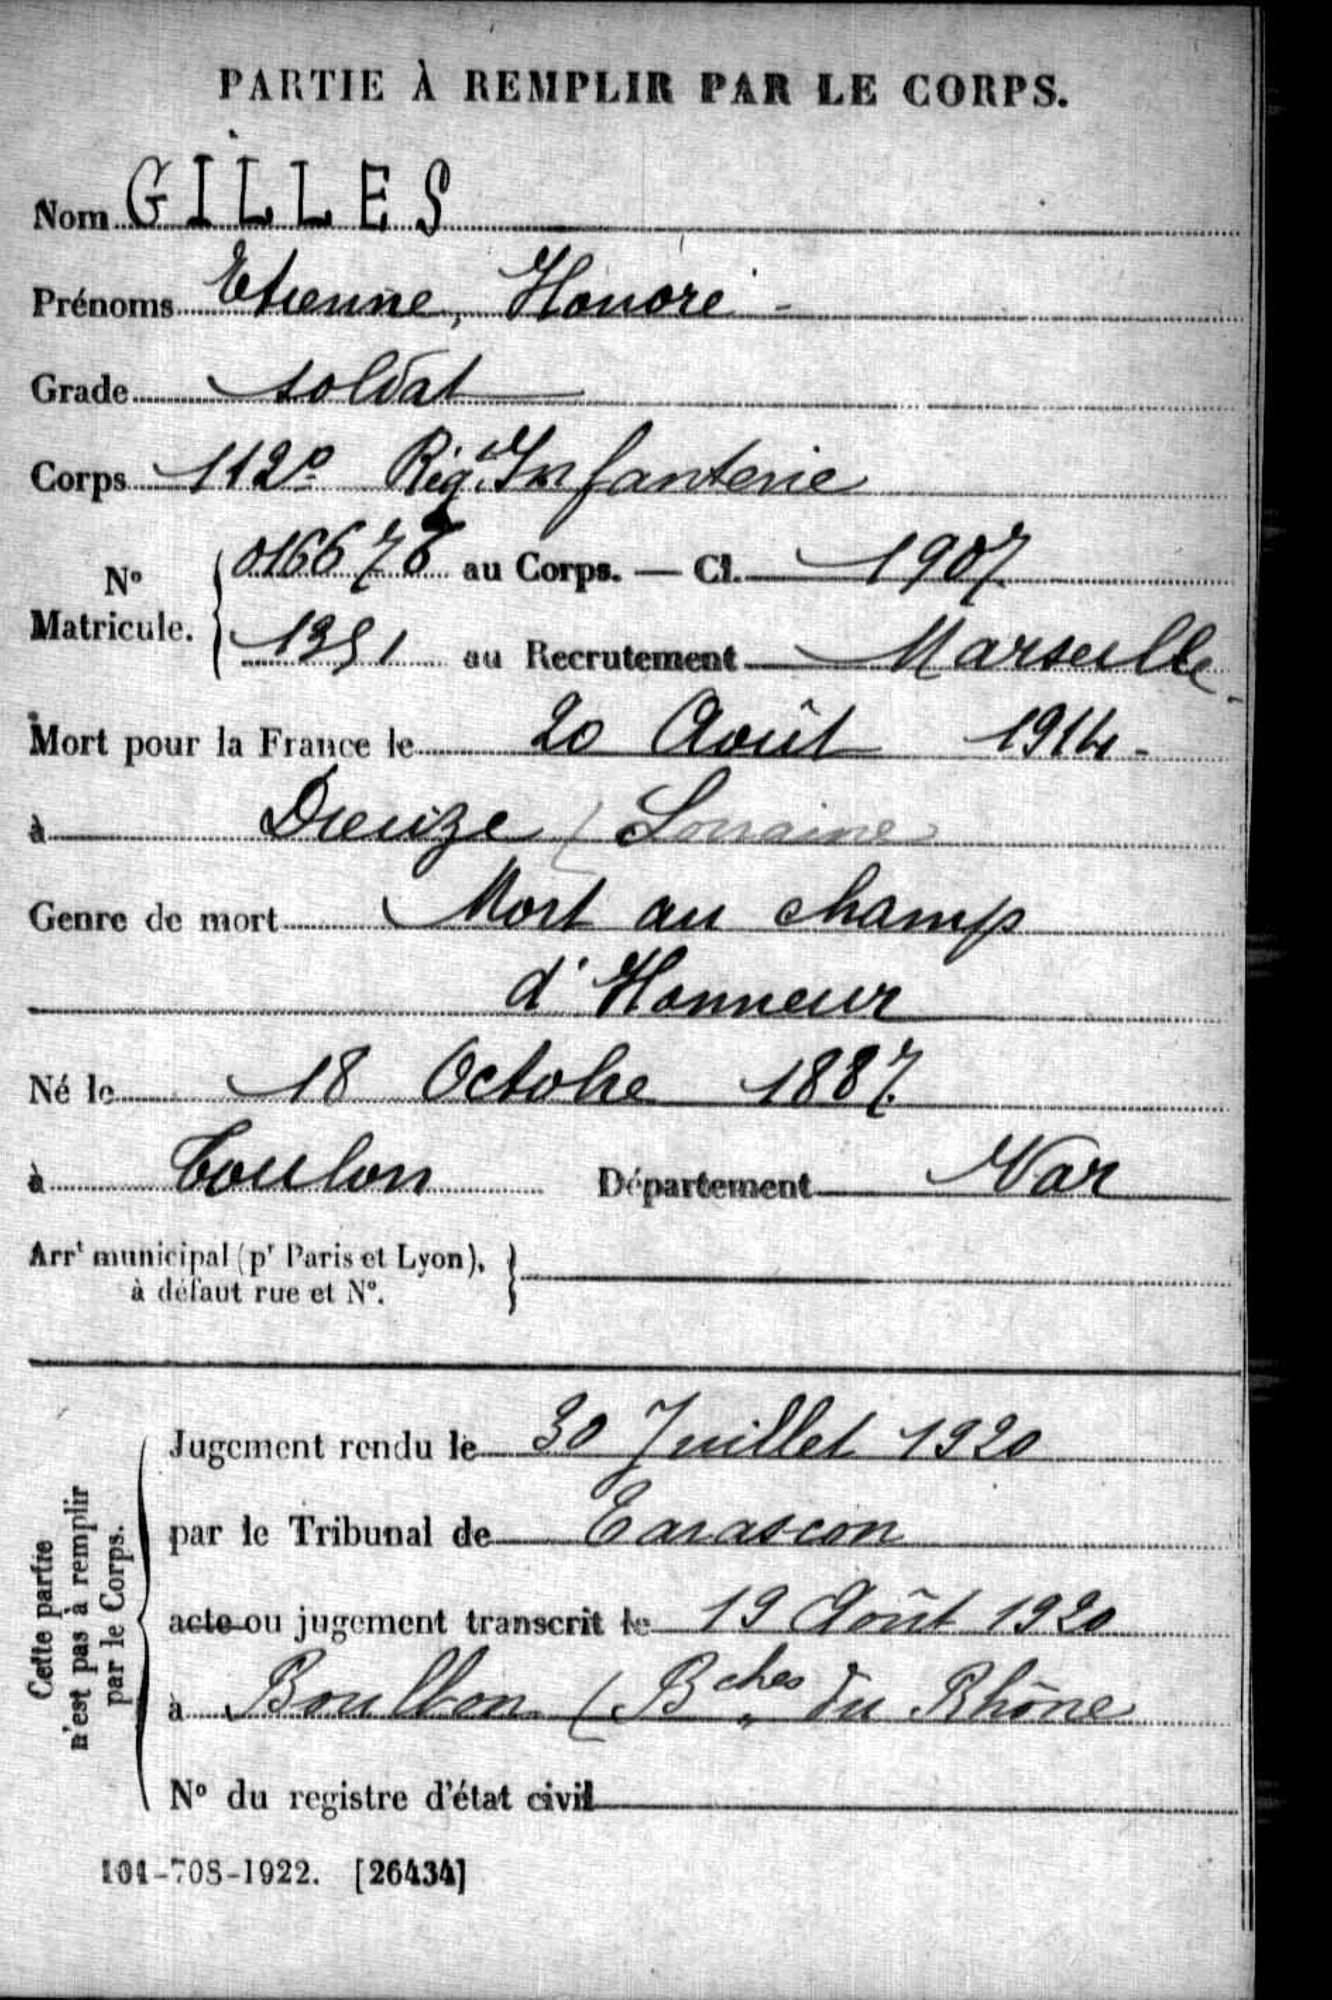 PARTIE À REMPLIR PAR LE CORPS.
Nom GILLES
Prénoms Etienne, Honoré -
Grade soldat
Corps 112e Rég. Infanterie
No Matricule. { au Corps. — Cl. 1907
1351 au Recrutement Marseille
Mort pour la France le 20 Août 1914 -
à Dieuze (Lorraine
Genre de mort Mort au champ
d'Honneur
Né le 18 Octobre 1887.
à Toulon Département Var
Arrt municipal (pr Paris et Lyon), }
à défaut rue et No.
Cette partie
n'est pas à remplir
par le Corps.
Jugement rendu le 30 Juillet 1920
par le Tribunal de Tarascon
acte ou jugement transcrit le 19 Août 1920
à Boulbon (Bches du Rhône
No du registre d'état civil
101-708-1922. [26434]